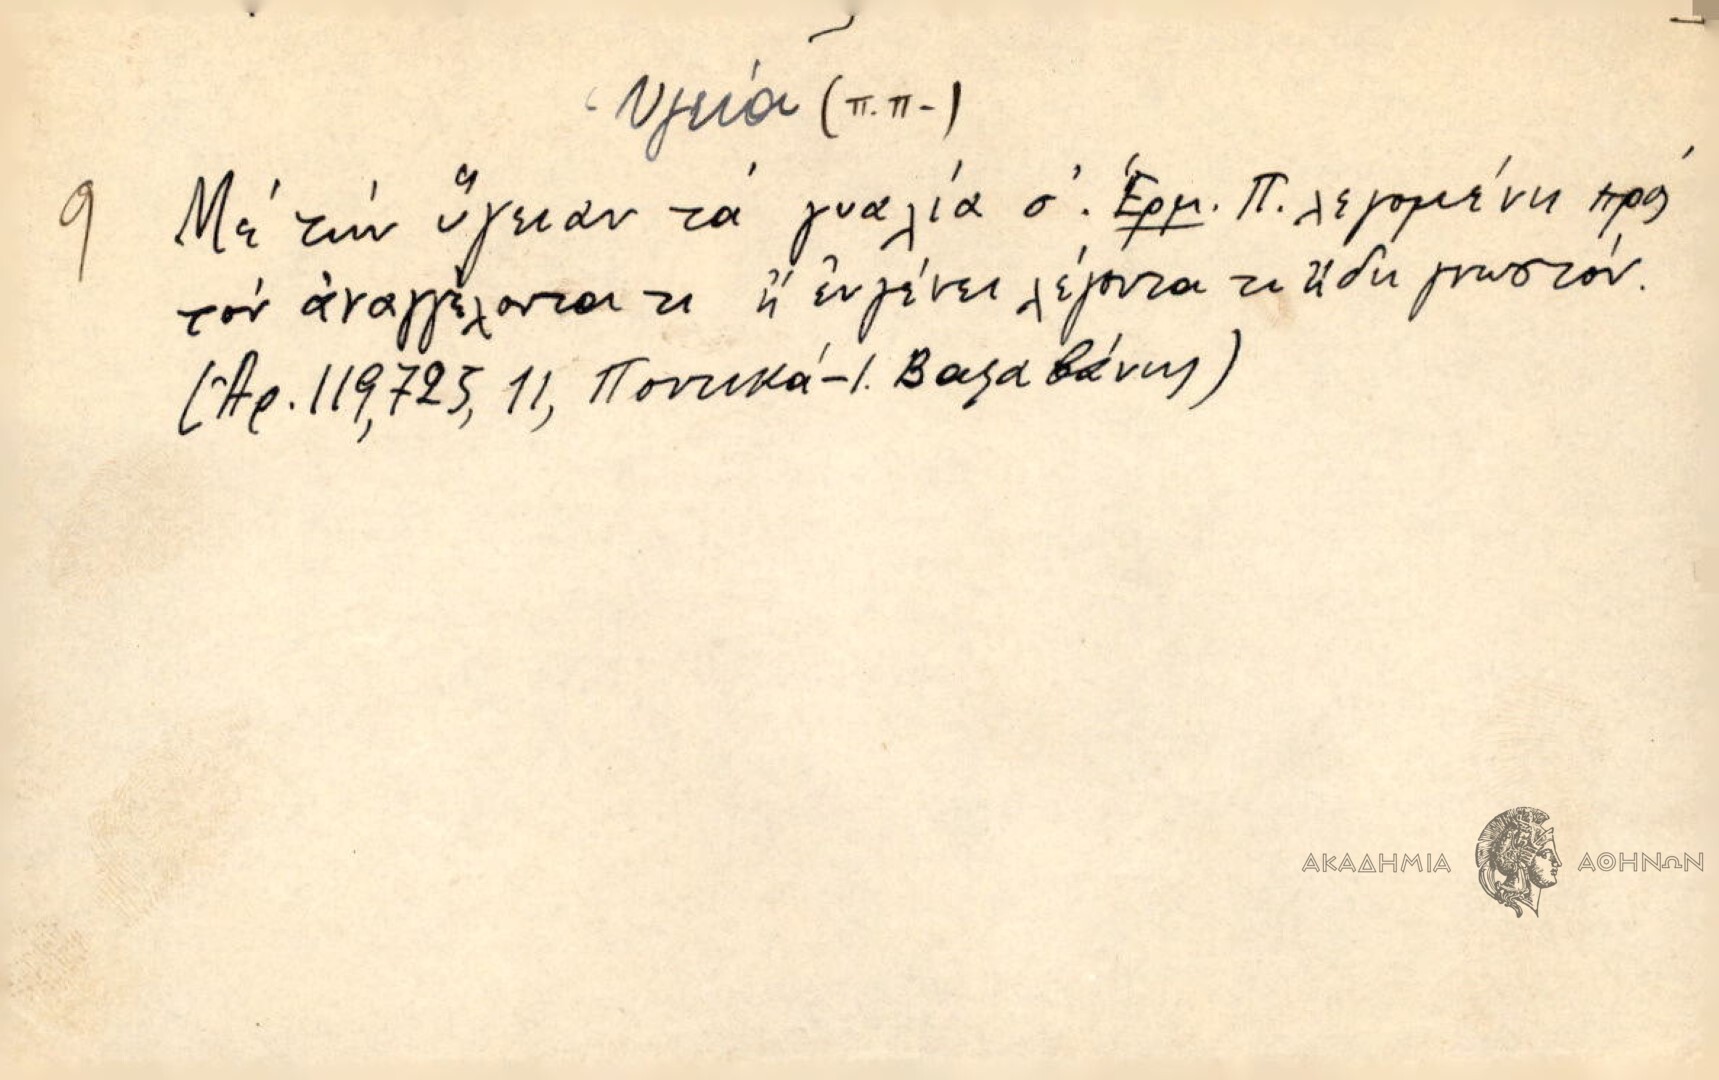 Ὑγειά (π.π-)
9 Μέ τήν ὕγειαν τά γυαλιά σ'. Ἑρμ. Π. λεγομένη πρός
τόν ἀναγγέλοντα τι ἤ ἐν γένει λέγοντα τι ἤδη γνωστόν.
(Ἀρ. 119,725, 11, Ποντικά - Ι. Βαζαβάνης)
ΑΚΑΔΗΜΙΑ ΑΘΗΝΩΝ